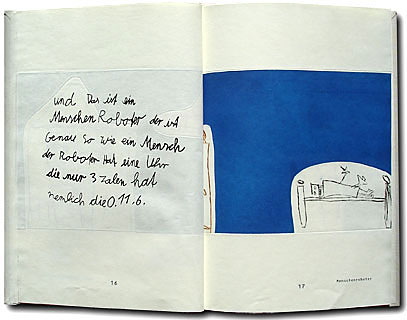 und Das ist ein
Menschen Roboter der ist
Genau So wie ein Mensch
der Roboter Hat eine Uhr
die nur 3 Zalen hat
nemlich die 0.11.6.
16
17
Menschenroboter